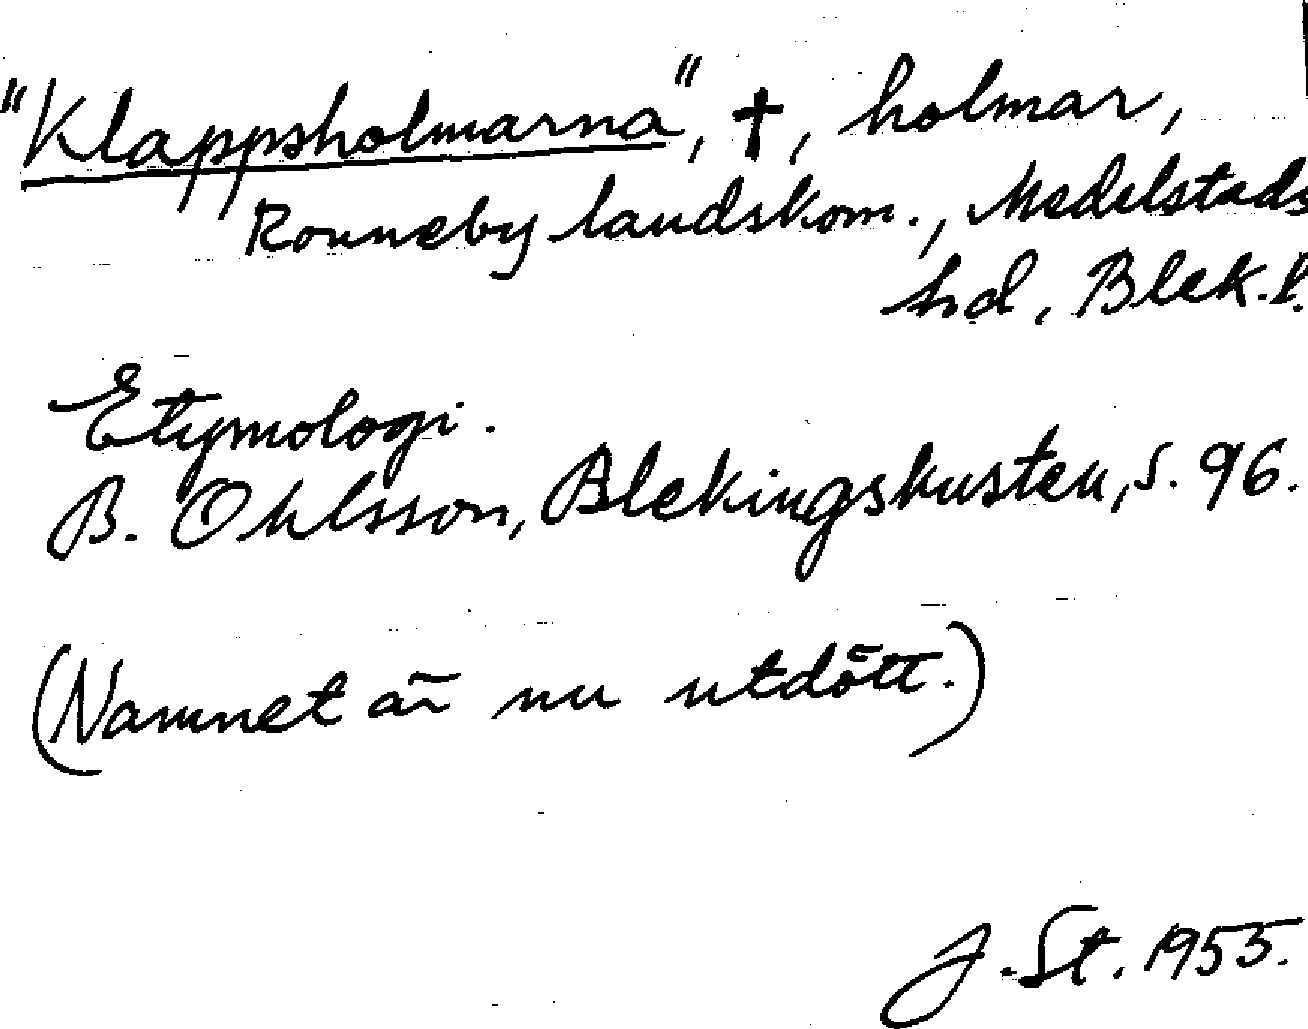 "Klappsholmarna", †, holmar,
Ronneby landskom., Medelstads
hd, Blek. l.
Etymologi.
B. Ohlsson, Blekingskusten, s. 96.
(Namnet är nu utdött.)
J. St. 1955.